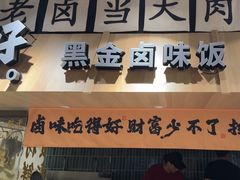 老卤当大肉
好。
黑金卤味饭
卤味吃得好 财富少不了